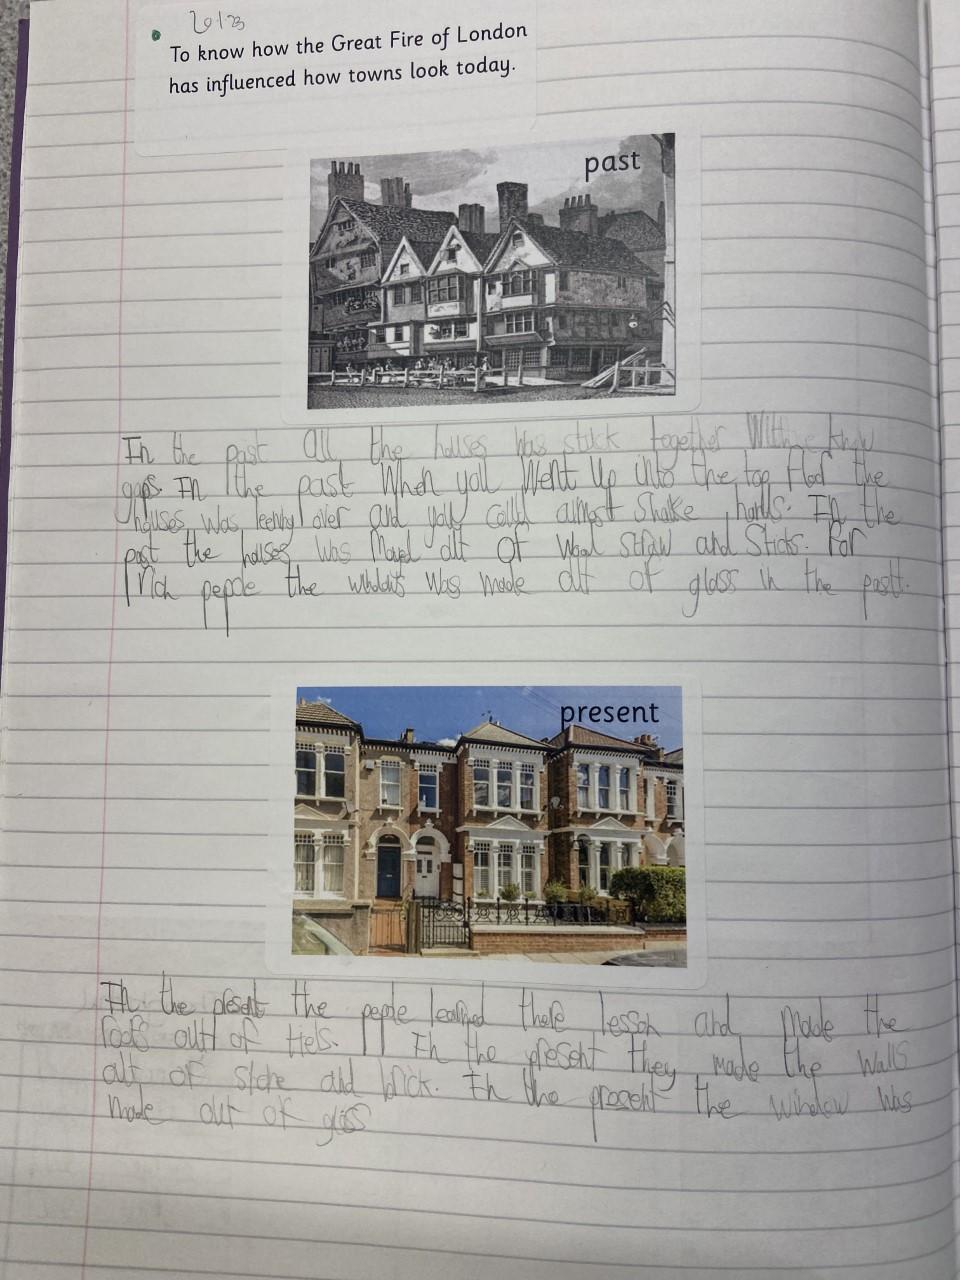 20/23
To know how the Great Fire of London
has influenced how towns look today.
past
In the past All the houses was stuck together With know
gaps. In the past When you Went Up into the top flod the
houses was leeny over and you could almost Shake hands. In the
past the houses was Mayd out Of Wood Straw and Sticks. For
Rich pepole the was made out of glass in the past.
present
In the present the peple learned there lesson and Made the
roofs outt of tiels. In the present they made the Walls
out of stone and brick. In the present the window was
Made out of glass